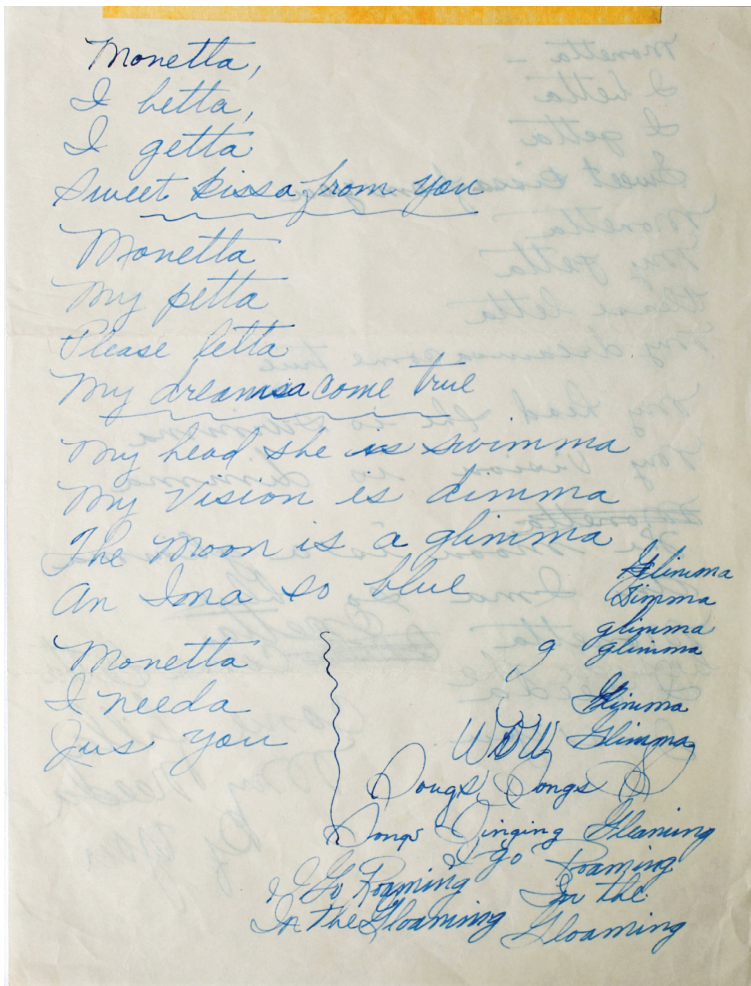 Monetta,
I betta,
I getta
Sweet Kissa from you
Monetta
My petta
Please letta
My dreamsa come true
My head she is swimma
My Vision is dimma
The Moon is a glimma
An Ima so blue
Glimma
Dimma
glimma
g glimma
Monetta
I needa
Jus you
Glimma
WOW Glimma
Songs Songs S
Songs Singing Gleaming
I go Roaming
I Go Roaming In the
In The Gloaming Gloaming